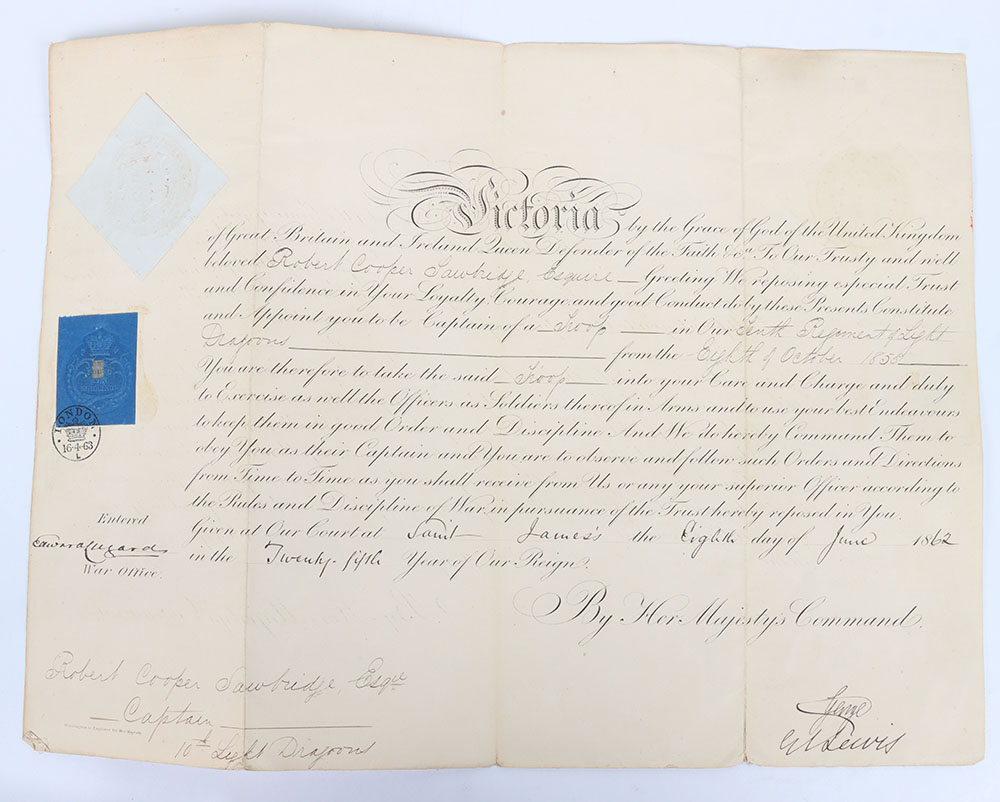 Victoria by the Grace of God of the United Kingdom
of Great Britain and Ireland Queen Defender of the Faith &c.a To Our Trusty and well
beloved Robert Cooper Sawbridge, Esquire Greeting We reposing especial Trust
and Confidence in Your Loyalty, Courage, and good Conduct do by these Presents Constitute
and Appoint you to be Captain of a Troop in Our Tenth Regiment of Light
Dragoons from the Eighth of October 1858
You are therefore to take the said Troop into your Care and Charge and duty
to Exercise as well the Officers as Soldiers thereof in Arms and to use your best Endeavours
to keep them in good Order and Discipline And We do hereby Command Them to
obey You as their Captain and You are to observe and follow such Orders and Directions
from Time to Time as you shall receive from Us or any your superior Officer according to
the Rules and Discipline of War in pursuance of the Trust hereby reposed in You.
Given at Our Court at Saint James's the Eighth day of June 1862
in the Twenty-fifth Year of Our Reign.
By Her Majesty's Command.
LONDON
16-4-63
L
Entered
Edward Lugard
War Office.
Robert Cooper Sawbridge, Esqre
Captain
10th Light Dragoons
G C Lewis